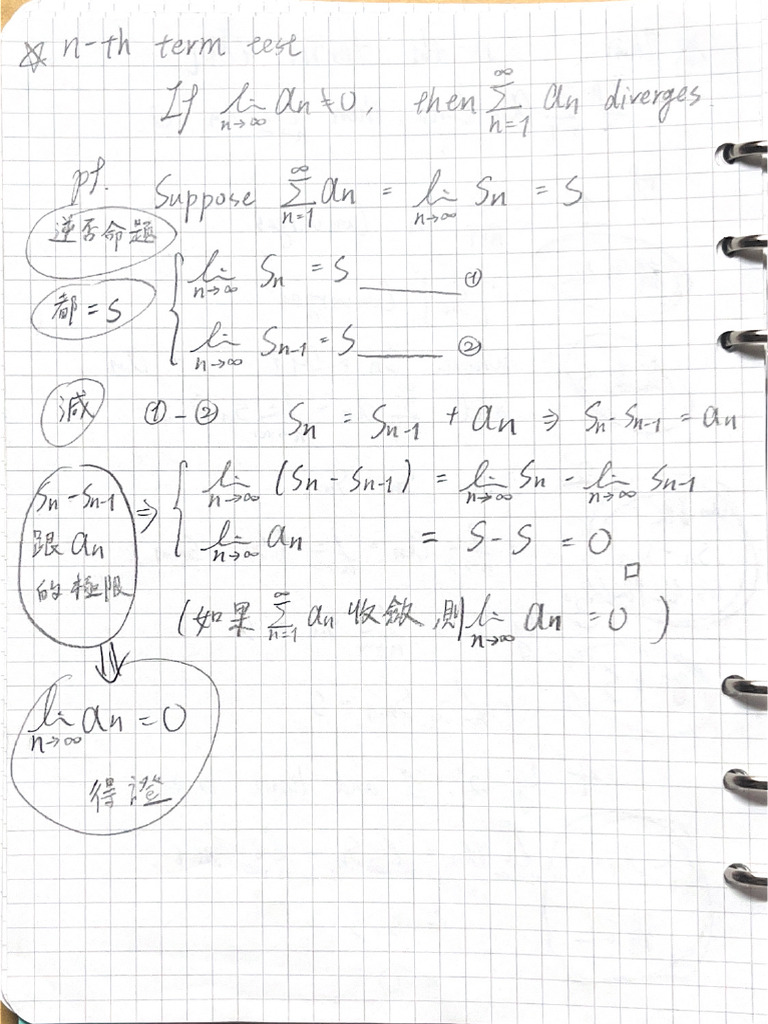 ☆ n-th term test
If lim n→∞ an ≠ 0, then ∞ Σ n=1 an diverges.
pf. Suppose ∞ Σ n=1 an = lim n→∞ Sn = S
逆否命題
lim n→∞ Sn = S ______ ①
都 = S
lim n→∞ Sn-1 = S ______ ②
減 ① - ② Sn = Sn-1 + an ⇒ Sn - Sn-1 = an
Sn - Sn-1
跟 an
的極限
⇒ { lim n→∞ (Sn - Sn-1) = lim n→∞ Sn - lim n→∞ Sn-1
lim n→∞ an = S - S = 0
□
(如果 ∞ Σ n=1 an 收斂, 則 lim n→∞ an = 0)
⇓
lim n→∞ an = 0
得證